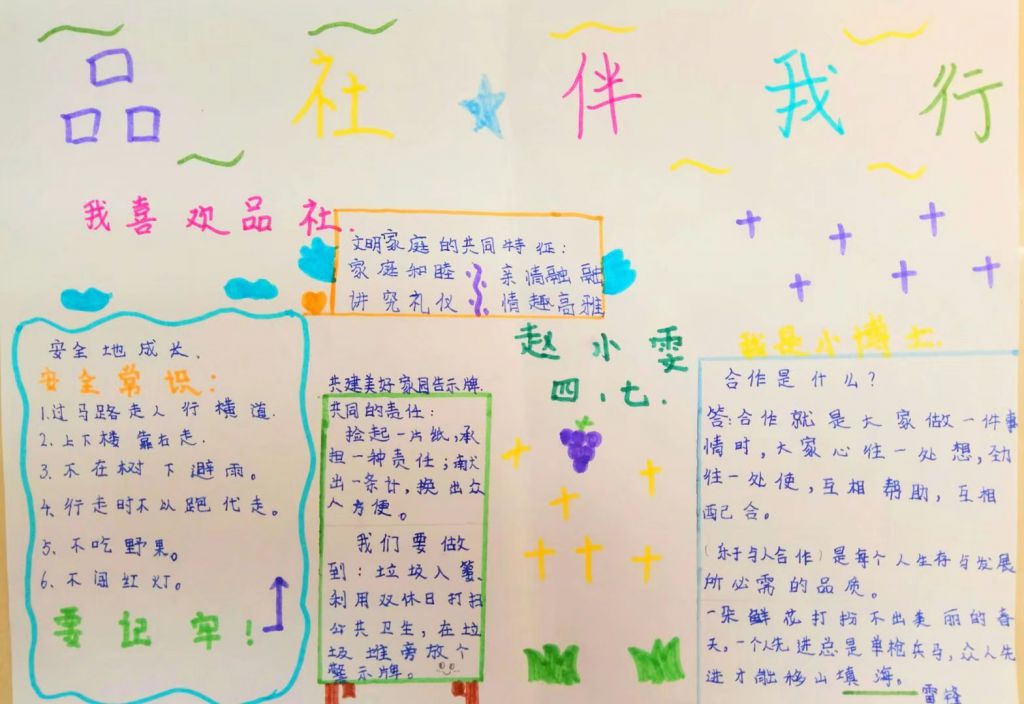 品社伴我行
我喜欢品社.
文明家庭的共同特征:
家庭和睦 亲情融融
讲究礼仪 情趣高雅
赵小雯
四、七.
安全地成长.
安全常识:
1.过马路走人行横道.
2.上下楼靠右走.
3.不在树下避雨。
4.行走时不以跑代走。
5、不吃野果。
6、不闯红灯。
要记牢!
共建美好家园告示牌.
共同的责任:
捡起一片纸,承
担一种责任;献
出一条计,换出众
人方便。
我们要做
到:垃圾入篓、
利用双休日打扫
公共卫生,在垃
圾堆旁放个
警示牌。
我是小博士.
合作是什么?
答:合作就是大家做一件事
情时,大家心往一处想,劲
往一处使,互相帮助,互相
配合。
(乐于与人合作)是每个人生存与发展
所必需的品质。
一朵鲜花打扮不出美丽的春
天,一个人先进总是单枪兵马,众人先
进才能移山填海。
雷锋